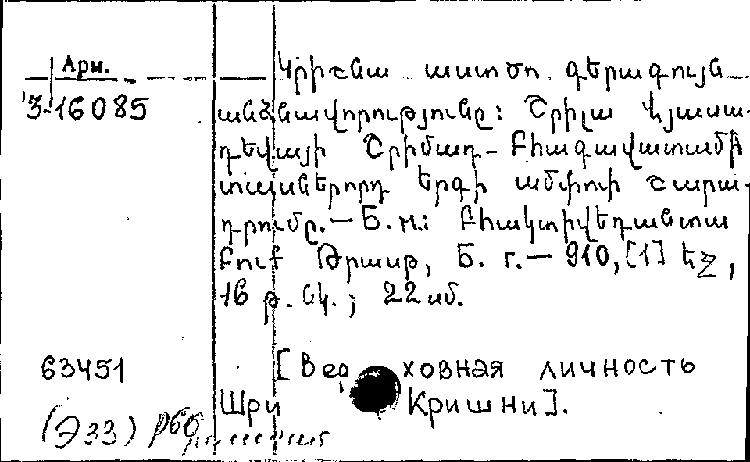 Арм.
Կրիշնա աստծո գերագույն
3-16085 անձնավորությունը: Շրիլա Վյասա-
դեվայի Շրիմադ-Բհագավատամի
տասներորդ երգի ամփոփ շարա-
դրումը.— Б.м.: Բհակտիվեդանտա
Բուք Թրասթ, Б. г.— 910, [1] եջ,
16 թ. նկ.; 22 սմ.
63451 [Верховная личность
Шри Кришни].
(Э33)